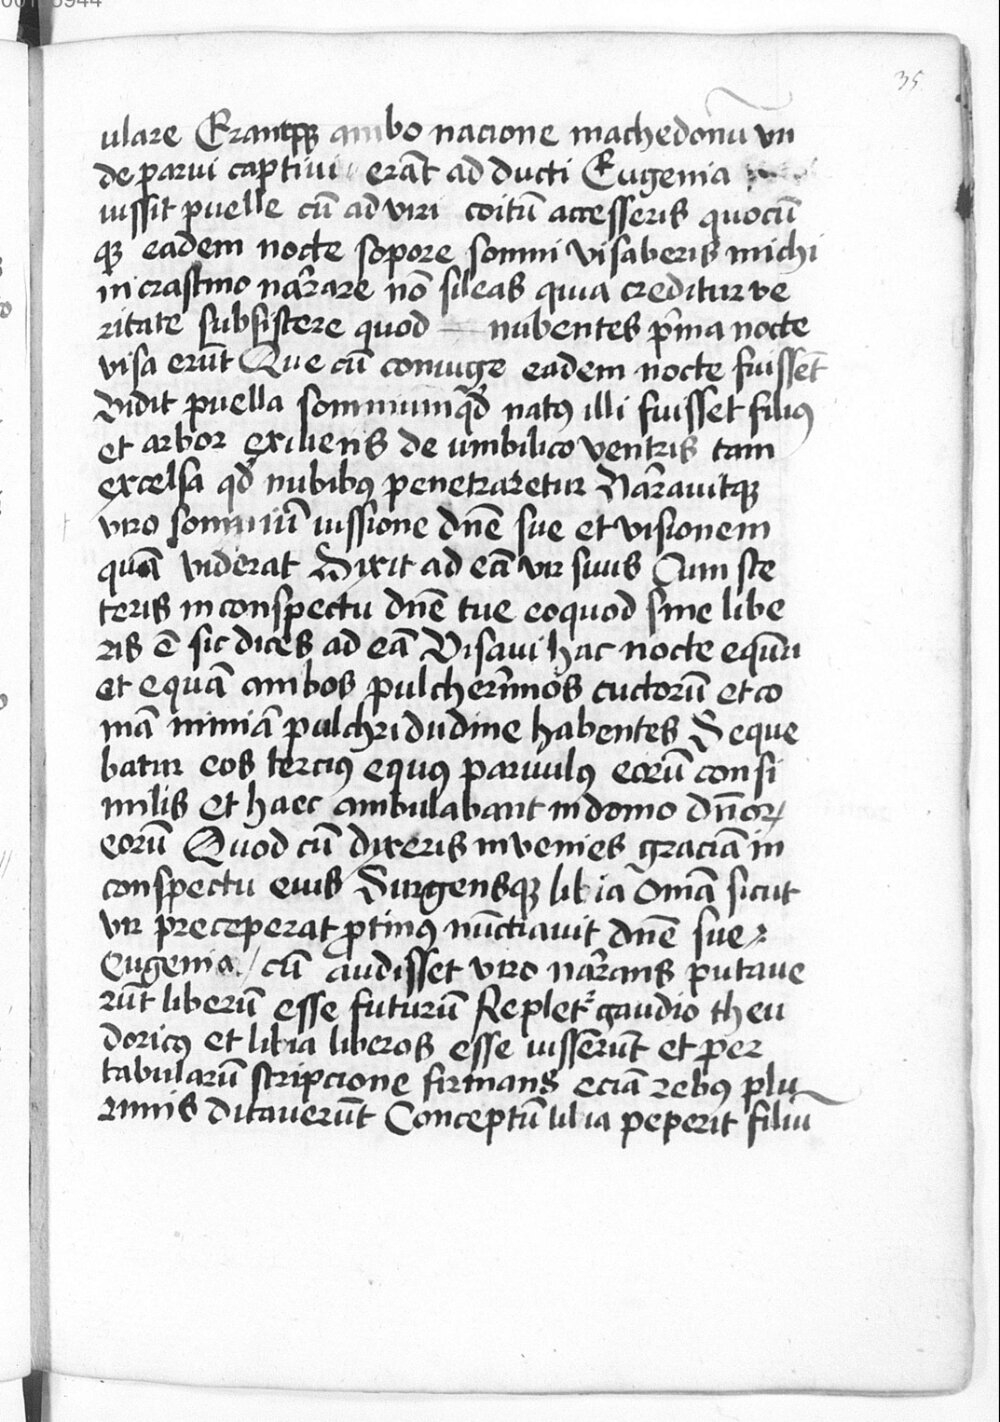 35
ulare Erantqꝫ ambo nacione machedonū vn
de parui captiui erāt ad ducti Eugenia
iussit puelle cū ad viri coitū accesseris quocū
qꝫ eadem nocte sopore somni visaberis michi
in crastino nar̄rare nō sileas quia creditur ve
ritate subsistere quod nubentes p̄ma nocte
visa erūt Que cū coniuge eadem nocte fuissēt
Vidit puella somnium qd̄ natꝰ illi fuisset filiꝰ
et arbor exiliens de umbilico ventris tam
excelsa qd̄ nubibꝰ penetraretur Nar̄rauitqꝫ
viro somniū iussione dn̄e sue et visionem
quā viderat Dixit ad eā vir suus Cum ste
teris in conspectu dn̄e tue eo quod sine libe
ris ē sic dices ad eā Visaui hac nocte equū
et equā ambos pulcher̄imos cuctorū et co
mā nimiā pulchridudine habentes Seque
batur eos terciꝰ equꝰ paruulꝰ eorū consi
milis et haec ambulabant in domo dn̄oꝝ
eorū Quod cū dixeris invenies graciā in
conspectu eius Surgensqꝫ libia om̄ā sicut
vir preceperat ꝓtinꝰ nūctiauit dn̄e sue
Eugenia / cū audisset viro nar̄rans putaue
rūt liberū esse futurū Replet᷑ gaudio theu
doricꝰ et libia liberos esse iusserūt et per
tabularū scripcione firmans eciā rebꝰ plu
rimis ditauerūt Conceptū libia peperit filiū